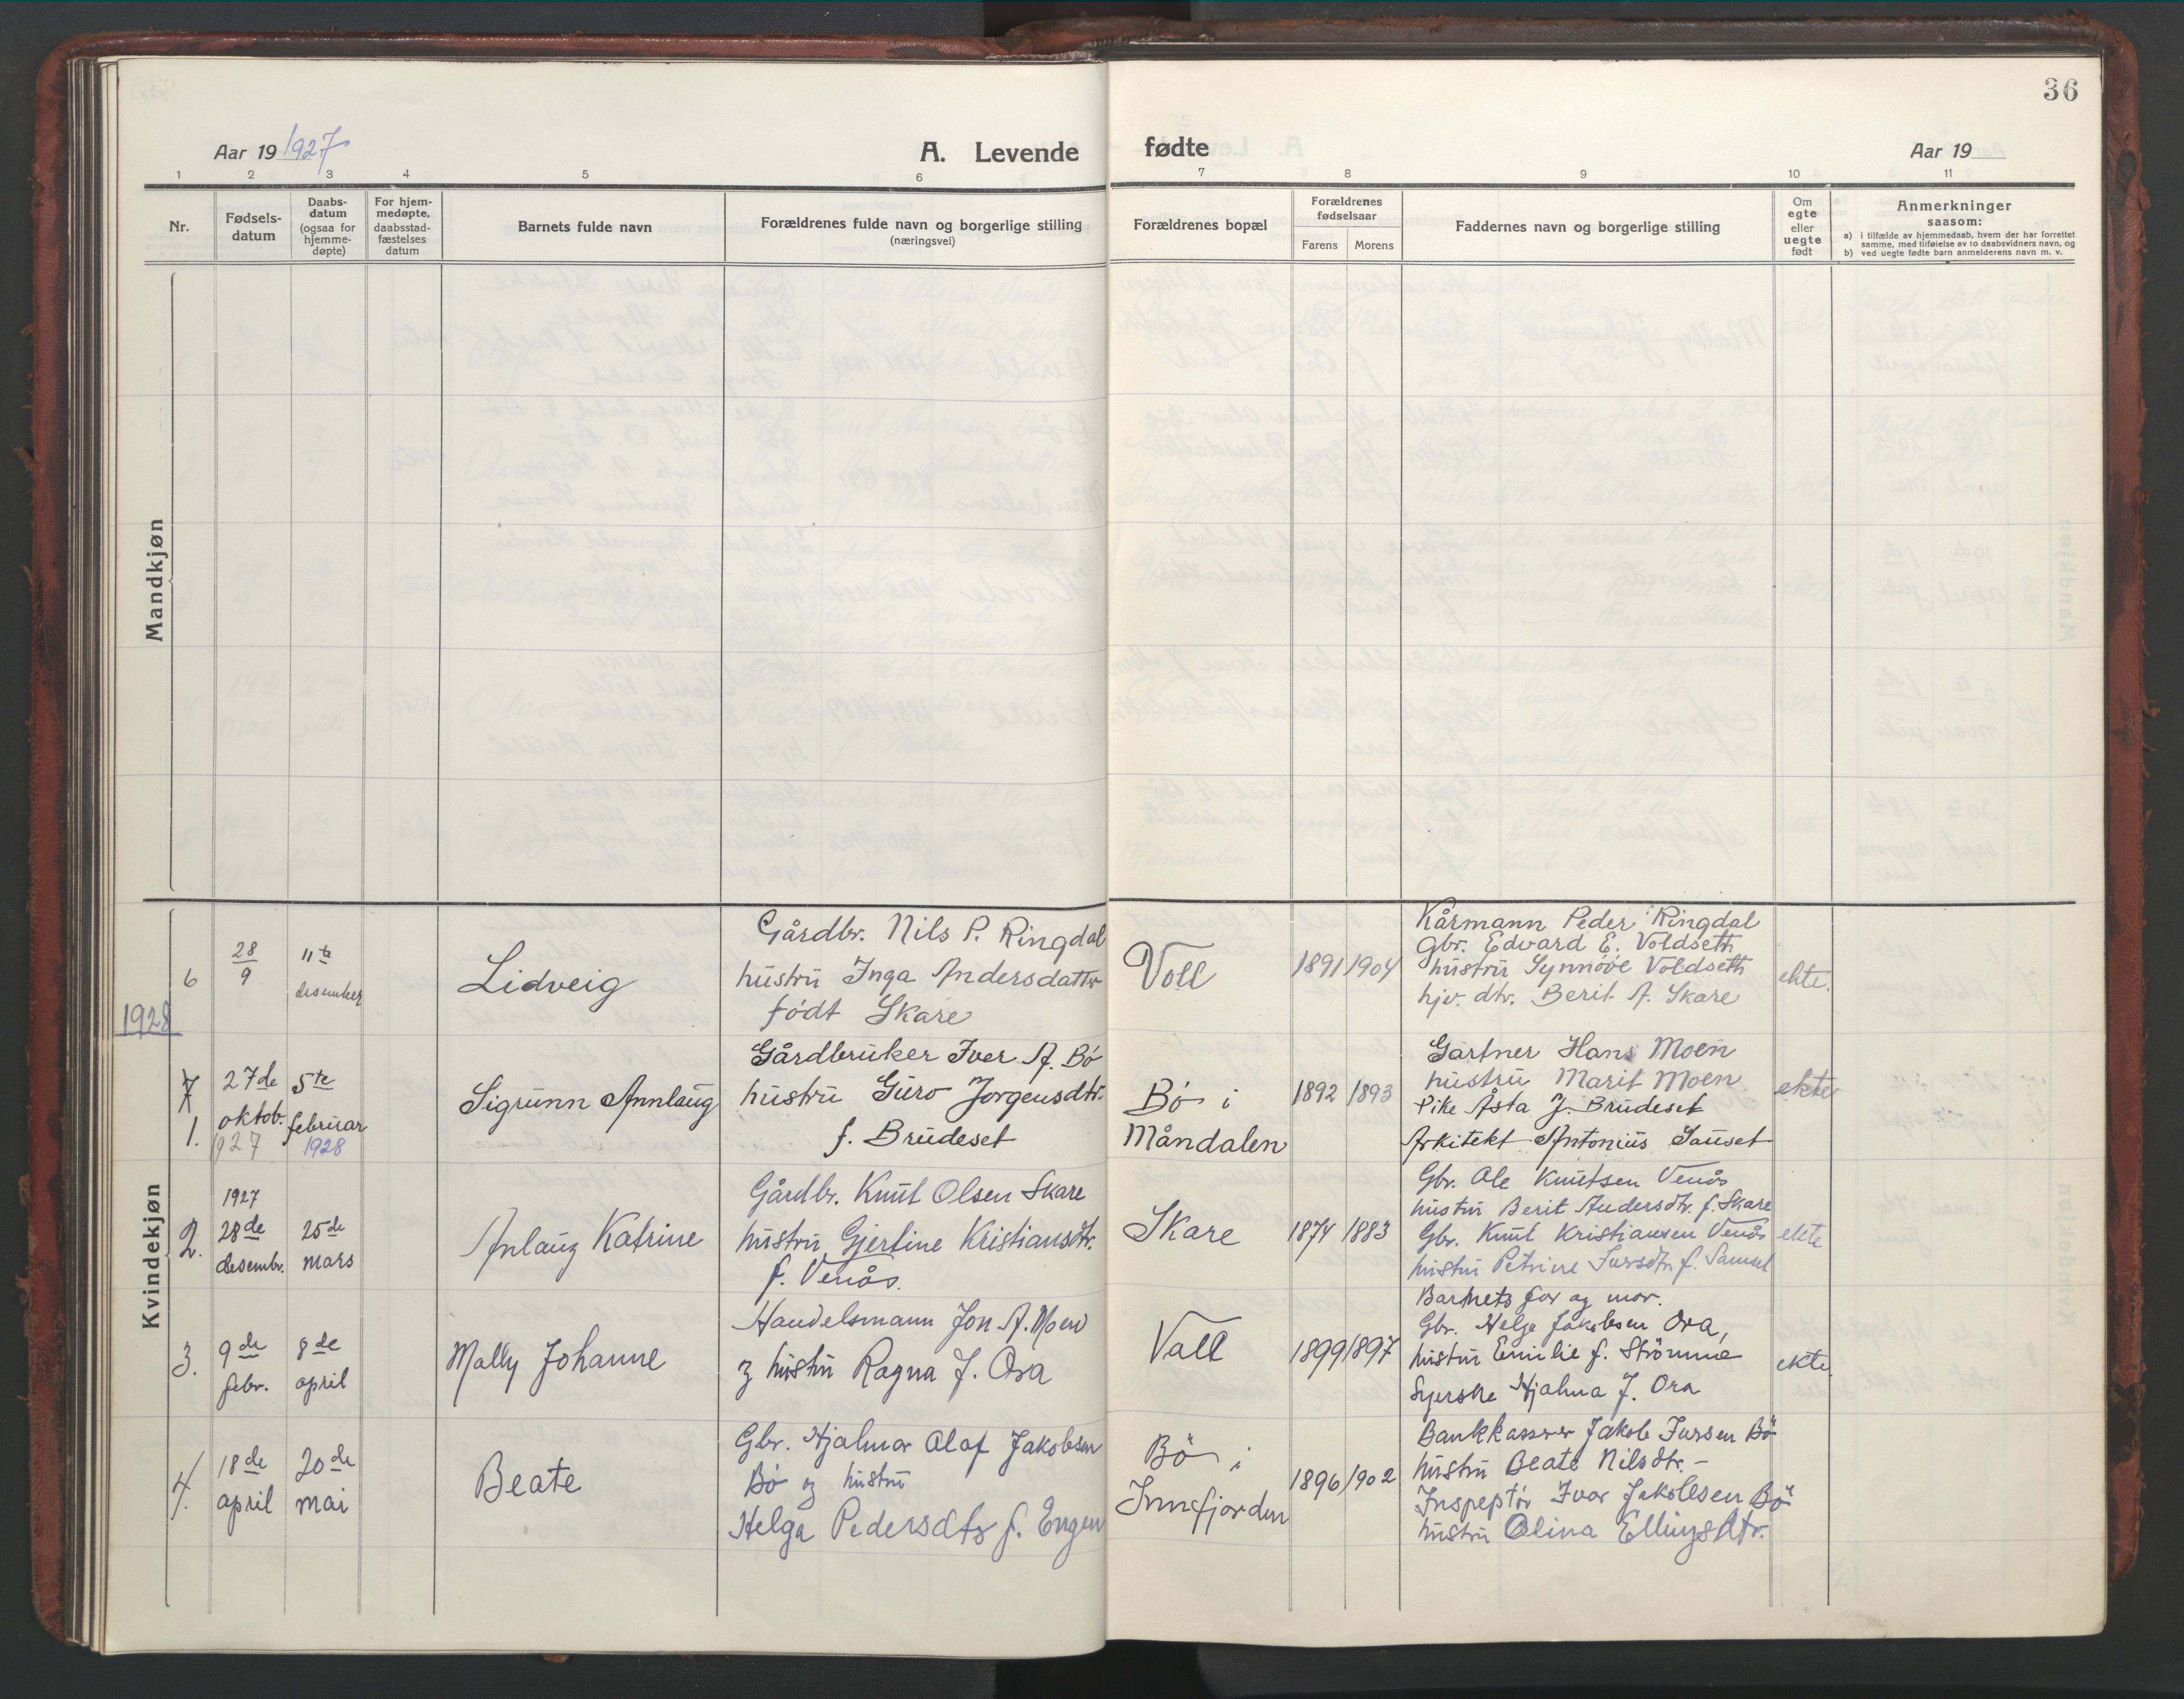 36
Aar 19 1927
A. Levende
fødte
Aar 19
1 2 3 4 5 6 7 8 9 10 11
Nr.
Fødsels-
datum
Daabs-
datum
(ogsaa for
hjemme-
døpte)
For hjem-
medøpte,
daabsstad-
fæstelses
datum
Barnets fulde navn
Forældrenes fulde navn og borgerlige stilling
(næringsvei)
Forældrenes bopæl
Forældrenes
fødselsaar
Farens Morens
Faddernes navn og borgerlige stilling
Om
egte
eller
uegte
født
Anmerkninger
saasom:
a) i tilfælde av hjemmedaab, hvem der har forrettet
samme, med tilføielse av to daabsvidners navn, og
b) ved uegte fødte barn anmelderens navn m. v.
Mandkjøn
Kvindekjøn
6
28
9
11te
desember
Lidveig
Gårdbr. Nils P. Ringdal
hustru Inga Andersdatter
født Skare
Voll
1891 1904
Kårmann Peder Ringdal
Gbr. Edvard E. Voldseth
hustru Synnøve Voldseth
hjv. dtr. Berit A. Skare
ekte.
1928
7
1.
27de
oktob.
1927
5te
februar
1928
Sigrunn Annlaug
Gårdbruker Iver A. Bö
hustru Guro Jørgensdtr.
f. Brudeset
Bö i
Måndalen
1892 1893
Gartner Hans Moen
hustru Marit Moen
Pike Åsta J. Brudeset
Arkitekt Antonius Sauset
ekte
2.
1927
28de
desembr.
25de
mars
Anlaug Katrine
Gårdbr. Knut Olsen Skare
hustru Gjertine Kristiansdtr.
f. Venås.
Skare
1874 1883
Gbr. Ole Knutsen Venås
hustru Berit Andersdtr. f. Skare
Gbr. Knut Kristiansen Venås
hustru Petrine Iversdtr f.
ekte
3.
9de
febr.
8de
april
Molly Johanne
Handelsmann Jon A. Moen
og hustru Ragna J. Ora
Voll
1899 1897
Barnets far og mor.
Gbr. Helge Jakobsen Ora,
hustru Emilie f. Strömme
Syerske Hjalma J. Ora
ekte.
4.
18de
april
20de
mai
Beate
Gbr. Hjalmar Olaf Jakobsen
Bö og hustru
Helga Pedersdtr f. Engen
Bö i
Innfjorden
1896 1902
Bankkasserer Jakob Iversen Bö
hustru Beate Nilsdtr. -
Inspeptör Ivar Jakobsen Bö
hustru Olina Ellingsdtr.